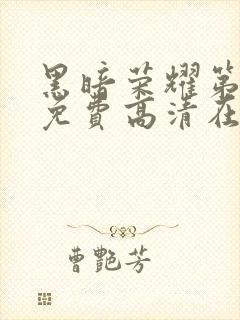 黑暗荣耀第
免费高清在
曹艷芳